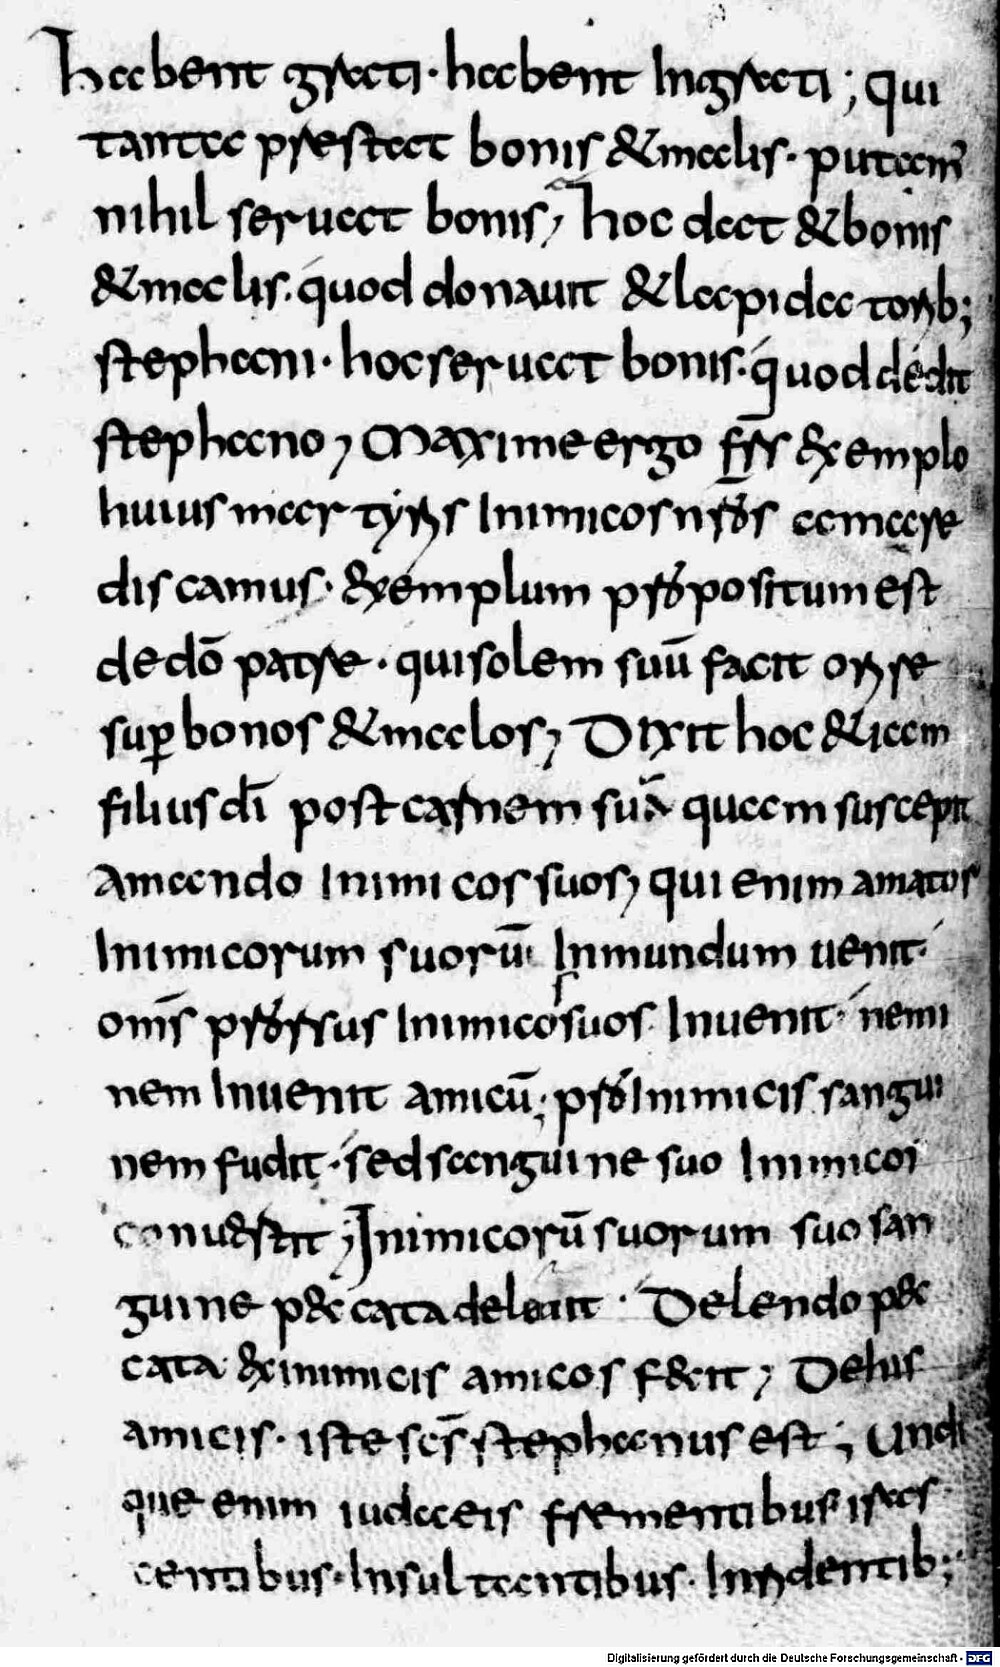 habent grati · habent Ingrati ; qui
tanta prestat bonis &malis · putam̅
nihil seruat bonis, hoc dat &bonis
&malis · quod donauit &lapidatorib;
stephani · hoc seruat bonis · quod dedit
stephano , Maxime ergo frs̅ exemplo
huius martyris Inimicos nr̅os amare
discamus · exemplum propositum est
de dō patre · qui solem suū facit oriri se
sup̱ bonos &malos, Dixit hoc &iam
filius dī post carnem suā quam suscepit
Amando Inimicos suos, qui enim amator
Inimicorum suorū Inmundum uenit ·
om̅s prorsus Inimicos suos Inuenit · nemi
nem Inuenit amicū ; pro Inimicis sangui
nem fudit · sed sanguine suo Inimicos
conuertit ; Inimicorū suorum suo san
guine peccata deleuit · Delendo pec
cata ex inimicis amicos fecit , De his
amicis · iste scs̅ stephanus est ; undi
que enim iudaeis frementibus iras
centibus · Insultantibus · Inridentib;
Digitalisierung gefördert durch die Deutsche Forschungsgemeinschaft - DFG